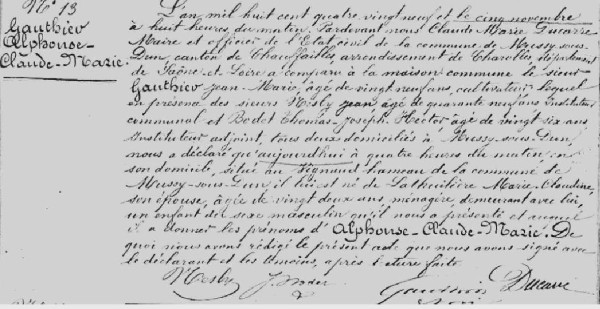 N° 13
Gauthier
Alphonse-
Claude-Marie.
L'an mil huit cent quatre vingt neuf et le cinq novembre
à huit heures du matin, Pardevant nous Claude Marie Ducarre
Maire et officier de l'Etat Civil de la commune de Mussy-sous-
Dun, canton de Chauffailles, arrondissement de Charolles, département
de Saône-et-Loire a comparu à la maison commune le sieur
Gauthier Jean-Marie, âgé de vingt neuf ans, cultivateur, lequel
en présence des sieurs Mesby Jean, âgé de quarante neuf ans Instituteur
communal et Bodet Thomas-Joseph-Hector âgé de vingt six ans
Instituteur adjoint, tous deux domiciliés à Mussy-sous-Dun,
nous a déclaré qu'aujourdhui à quatre heures du matin, en
son domicile, situé au hameau de la commune de
Mussy-sous-Dun, il lui est né de Marie-Claudine,
son épouse, âgée de vingt deux ans, ménagère, demeurant avec lui,
un enfant du sexe masculin qu'il nous a présenté et auquel
il a donné les prénoms d'Alphonse-Claude-Marie. De
quoi nous avons rédigé le présent acte que nous avons signé avec
le déclarant et les témoins, après lecture faite
Mesby Gauthier Ducarre